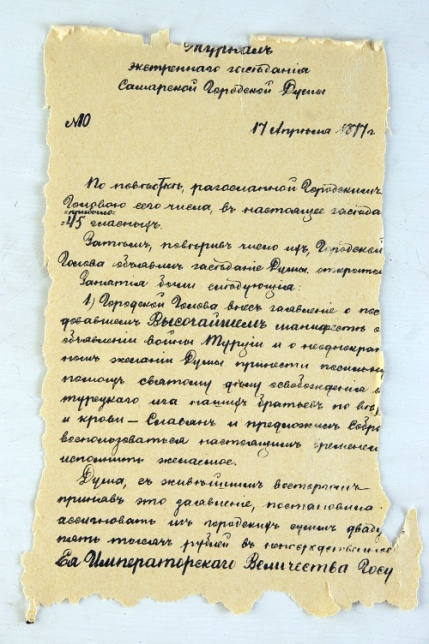 Журналъ
экстреннаго засѣданія
Самарской Городской Думы
№10 17 Апрѣля 1877 г
По повѣсткѣ, разосланной Городскимъ
Головою сего числа, въ настоящее засѣда
прибыло
45 гласныхъ.
Затѣмъ, повѣривъ число ихъ, Городской
Голова объявилъ засѣданіе Думы открыты
Занятія были слѣдующія:
1) Городской Голова внесъ заявленіе о пос
довавшемъ Высочайшемъ манифестѣ о
объявленіи войны Турціи и о неоднократ
номъ желаніи Думы принести посильну
помощь святому дѣлу освобожденія о
турецкаго ига нашихъ братьевъ по вѣр
и крови — Славянъ и предложилъ Собра
воспользоваться настоящимъ временемъ
исполнить желаемое.
Дума, съ живѣйшимъ восторгомъ
принявъ это заявленіе, постановила:
ассигновать изъ городскихъ суммъ двад
пять тысячъ рублей въ непосредственное
Ея Императорскаго Величества Госу